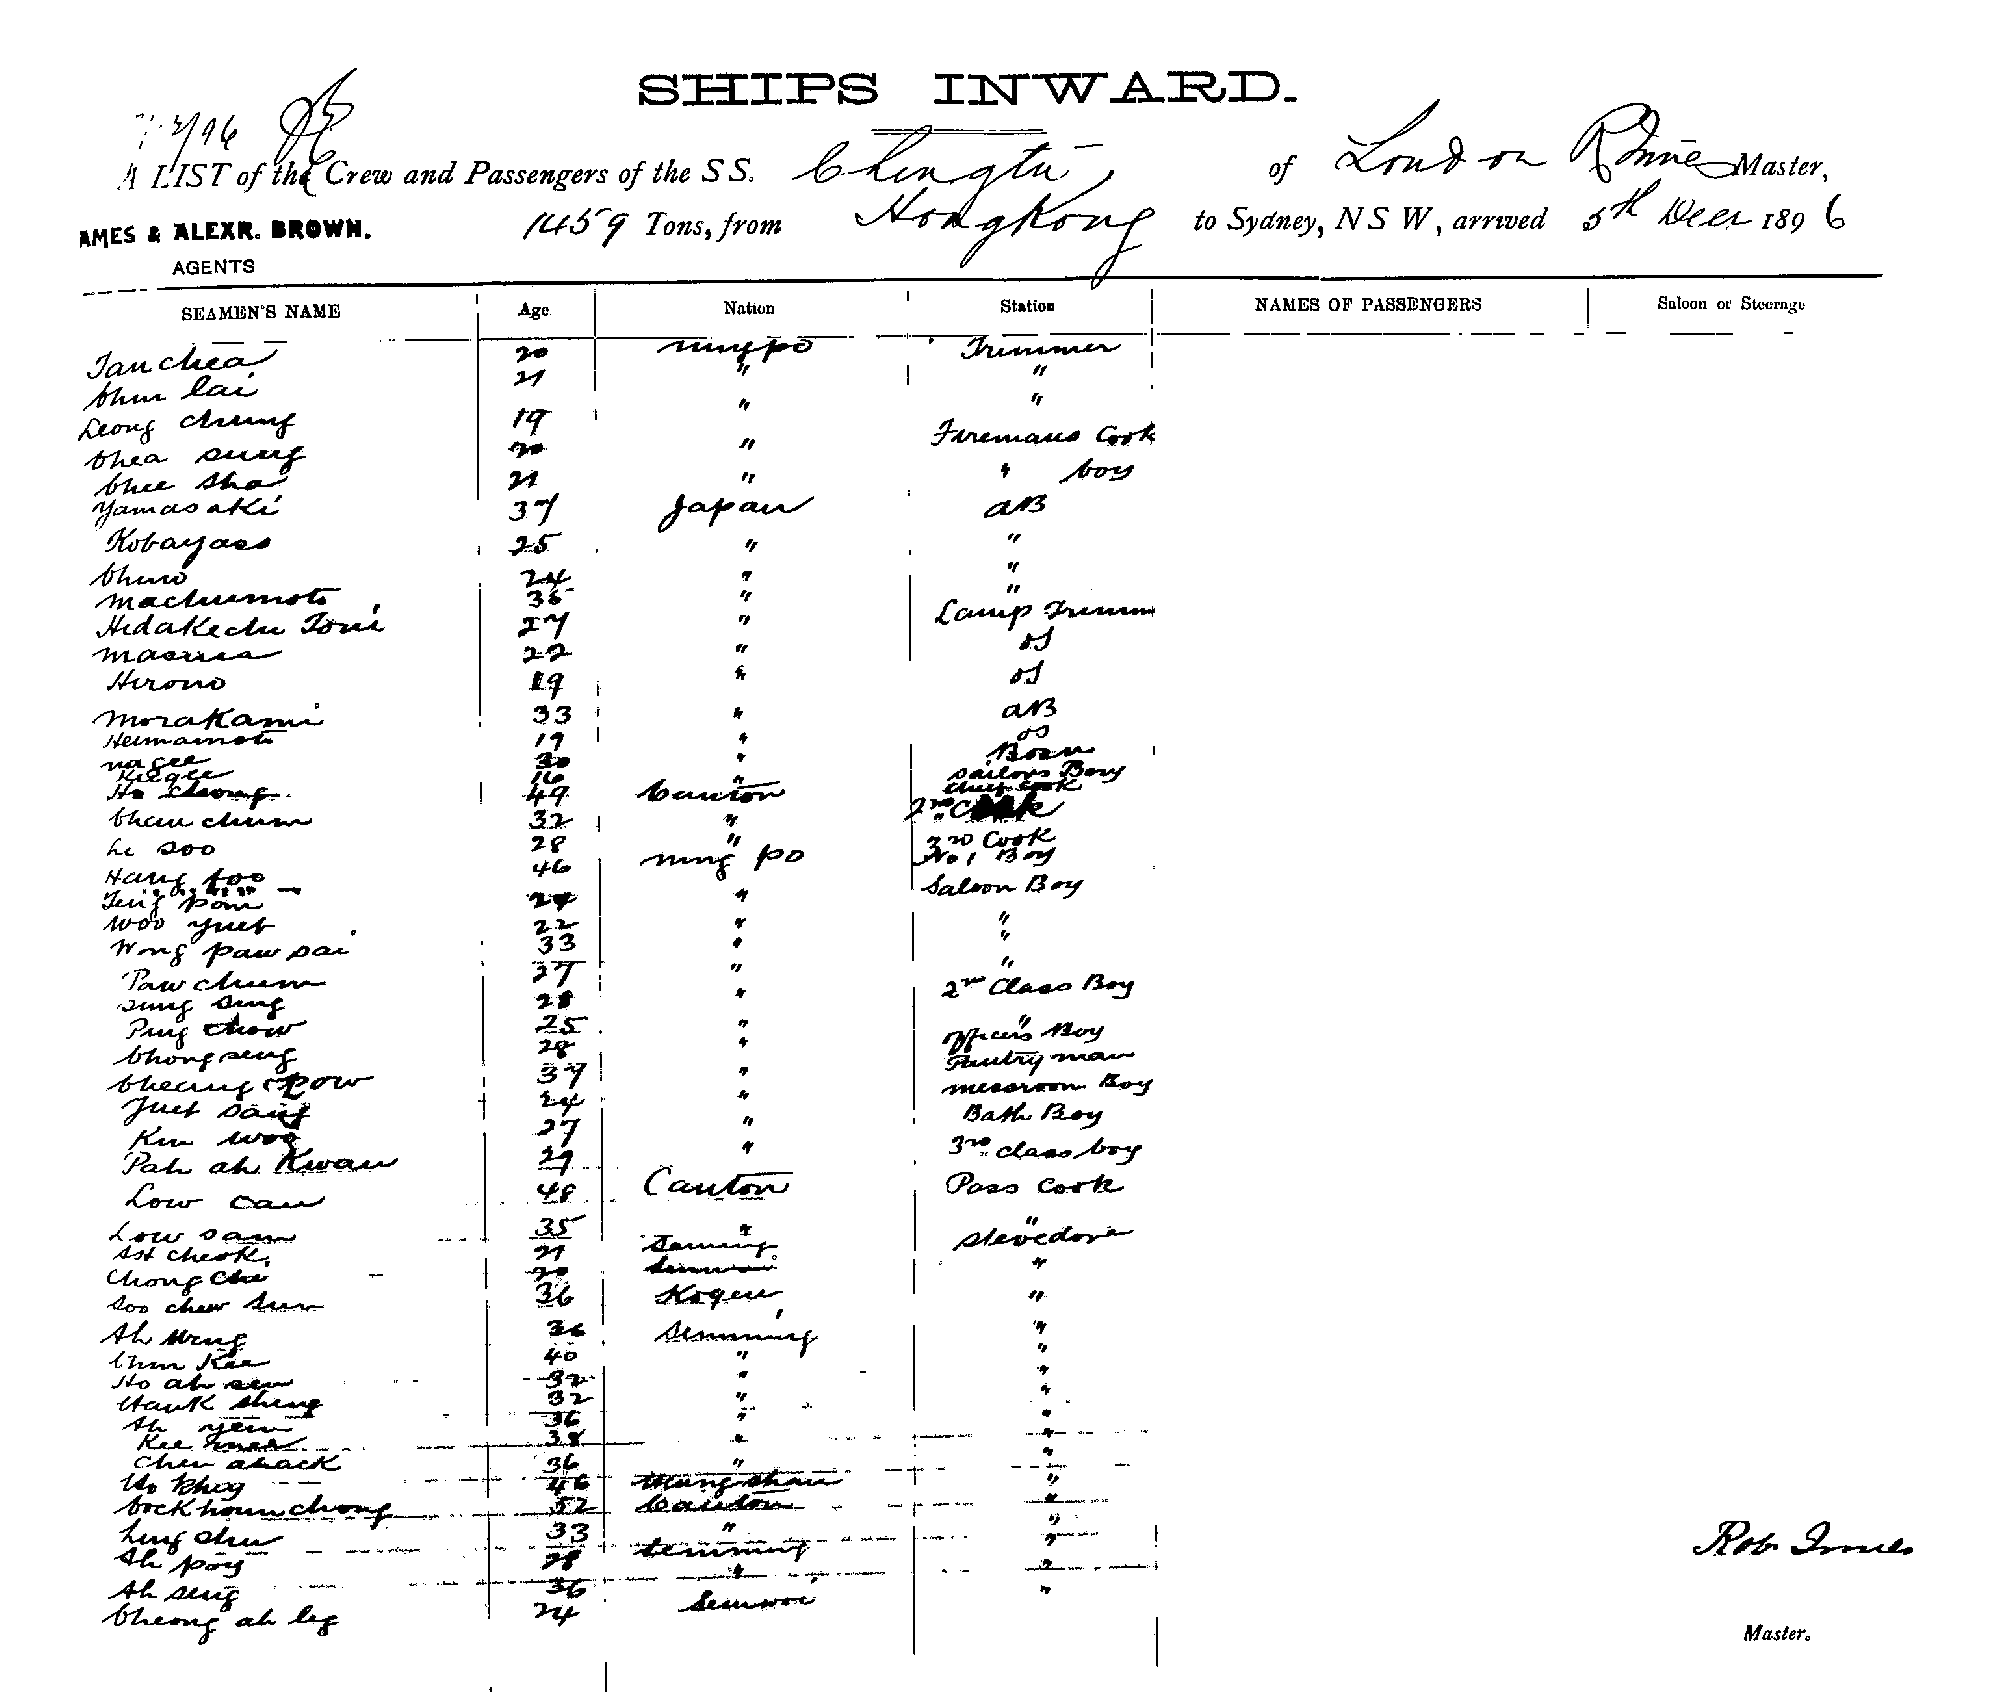 SHIPS INWARD.
/96
A LIST of the Crew and Passengers of the SS. Chingtu, of London R Innes Master,
AMES & ALEXR. BROWN. 1459 Tons, from HongKong to Sydney, NSW, arrived 5th Decr 1896
AGENTS
SEAMEN'S NAME Age Nation Station NAMES OF PASSENGERS Saloon or Steerage
Tan chea 20 ningpo Trimmer
Chun lai 21 " "
Leong chung 19 " "
Chea sung 20 " Firemans Cook
Chee sha 21 " " boy
Yamasaki 37 Japan AB
Kobayass 25 " "
Chuio 24 " "
Machumoto 35 " "
Hidakechi Toni 27 " Lamp Trimm
Masuia 22 " OS
Hirono 19 " OS
Morakami 33 " AB
Heimamoto 19 " OS
nagee 30 " Bosn
Keegee 16 " Sailors Boy
Ho Cheong 49 Canton Chief Cook
Chan chum 32 " 2nd Cook
Le soo 28 " 3rd Cook
Hang foo 46 ning po No 1 Boy
Ting pom " Saloon Boy
Woo yuet 22 " "
Wong paw sai 33 " "
Paw chum 27 " "
Sung sing 28 " 2nd Class Boy
Ping chow 25 " "
Chong seng 28 " officers Boy
Cheang pow 37 " Pantry man
Yuet sang 24 " messroom Boy
Kin wog 27 " Bath Boy
Pah ah Kwan 29 " 3rd class boy
Low can 48 Canton Pass Cook
Low sam 35 " "
Ast cheok 21 stevedore
Chong che 20 "
Soo chew sun 36 "
Ah 36 Semming "
Chin Kee 40 " "
Ho ah sen 32 " "
sheng 32 " "
Ah yem 36 " "
Kee 38 " "
Chen ahack 36 " "
46 "
chong 52 Canton "
Ling chu 33 " "
Ah poy 28 "
Ah seng 36 " "
Cheong ah leg 24 "
Rob Innes
Master.